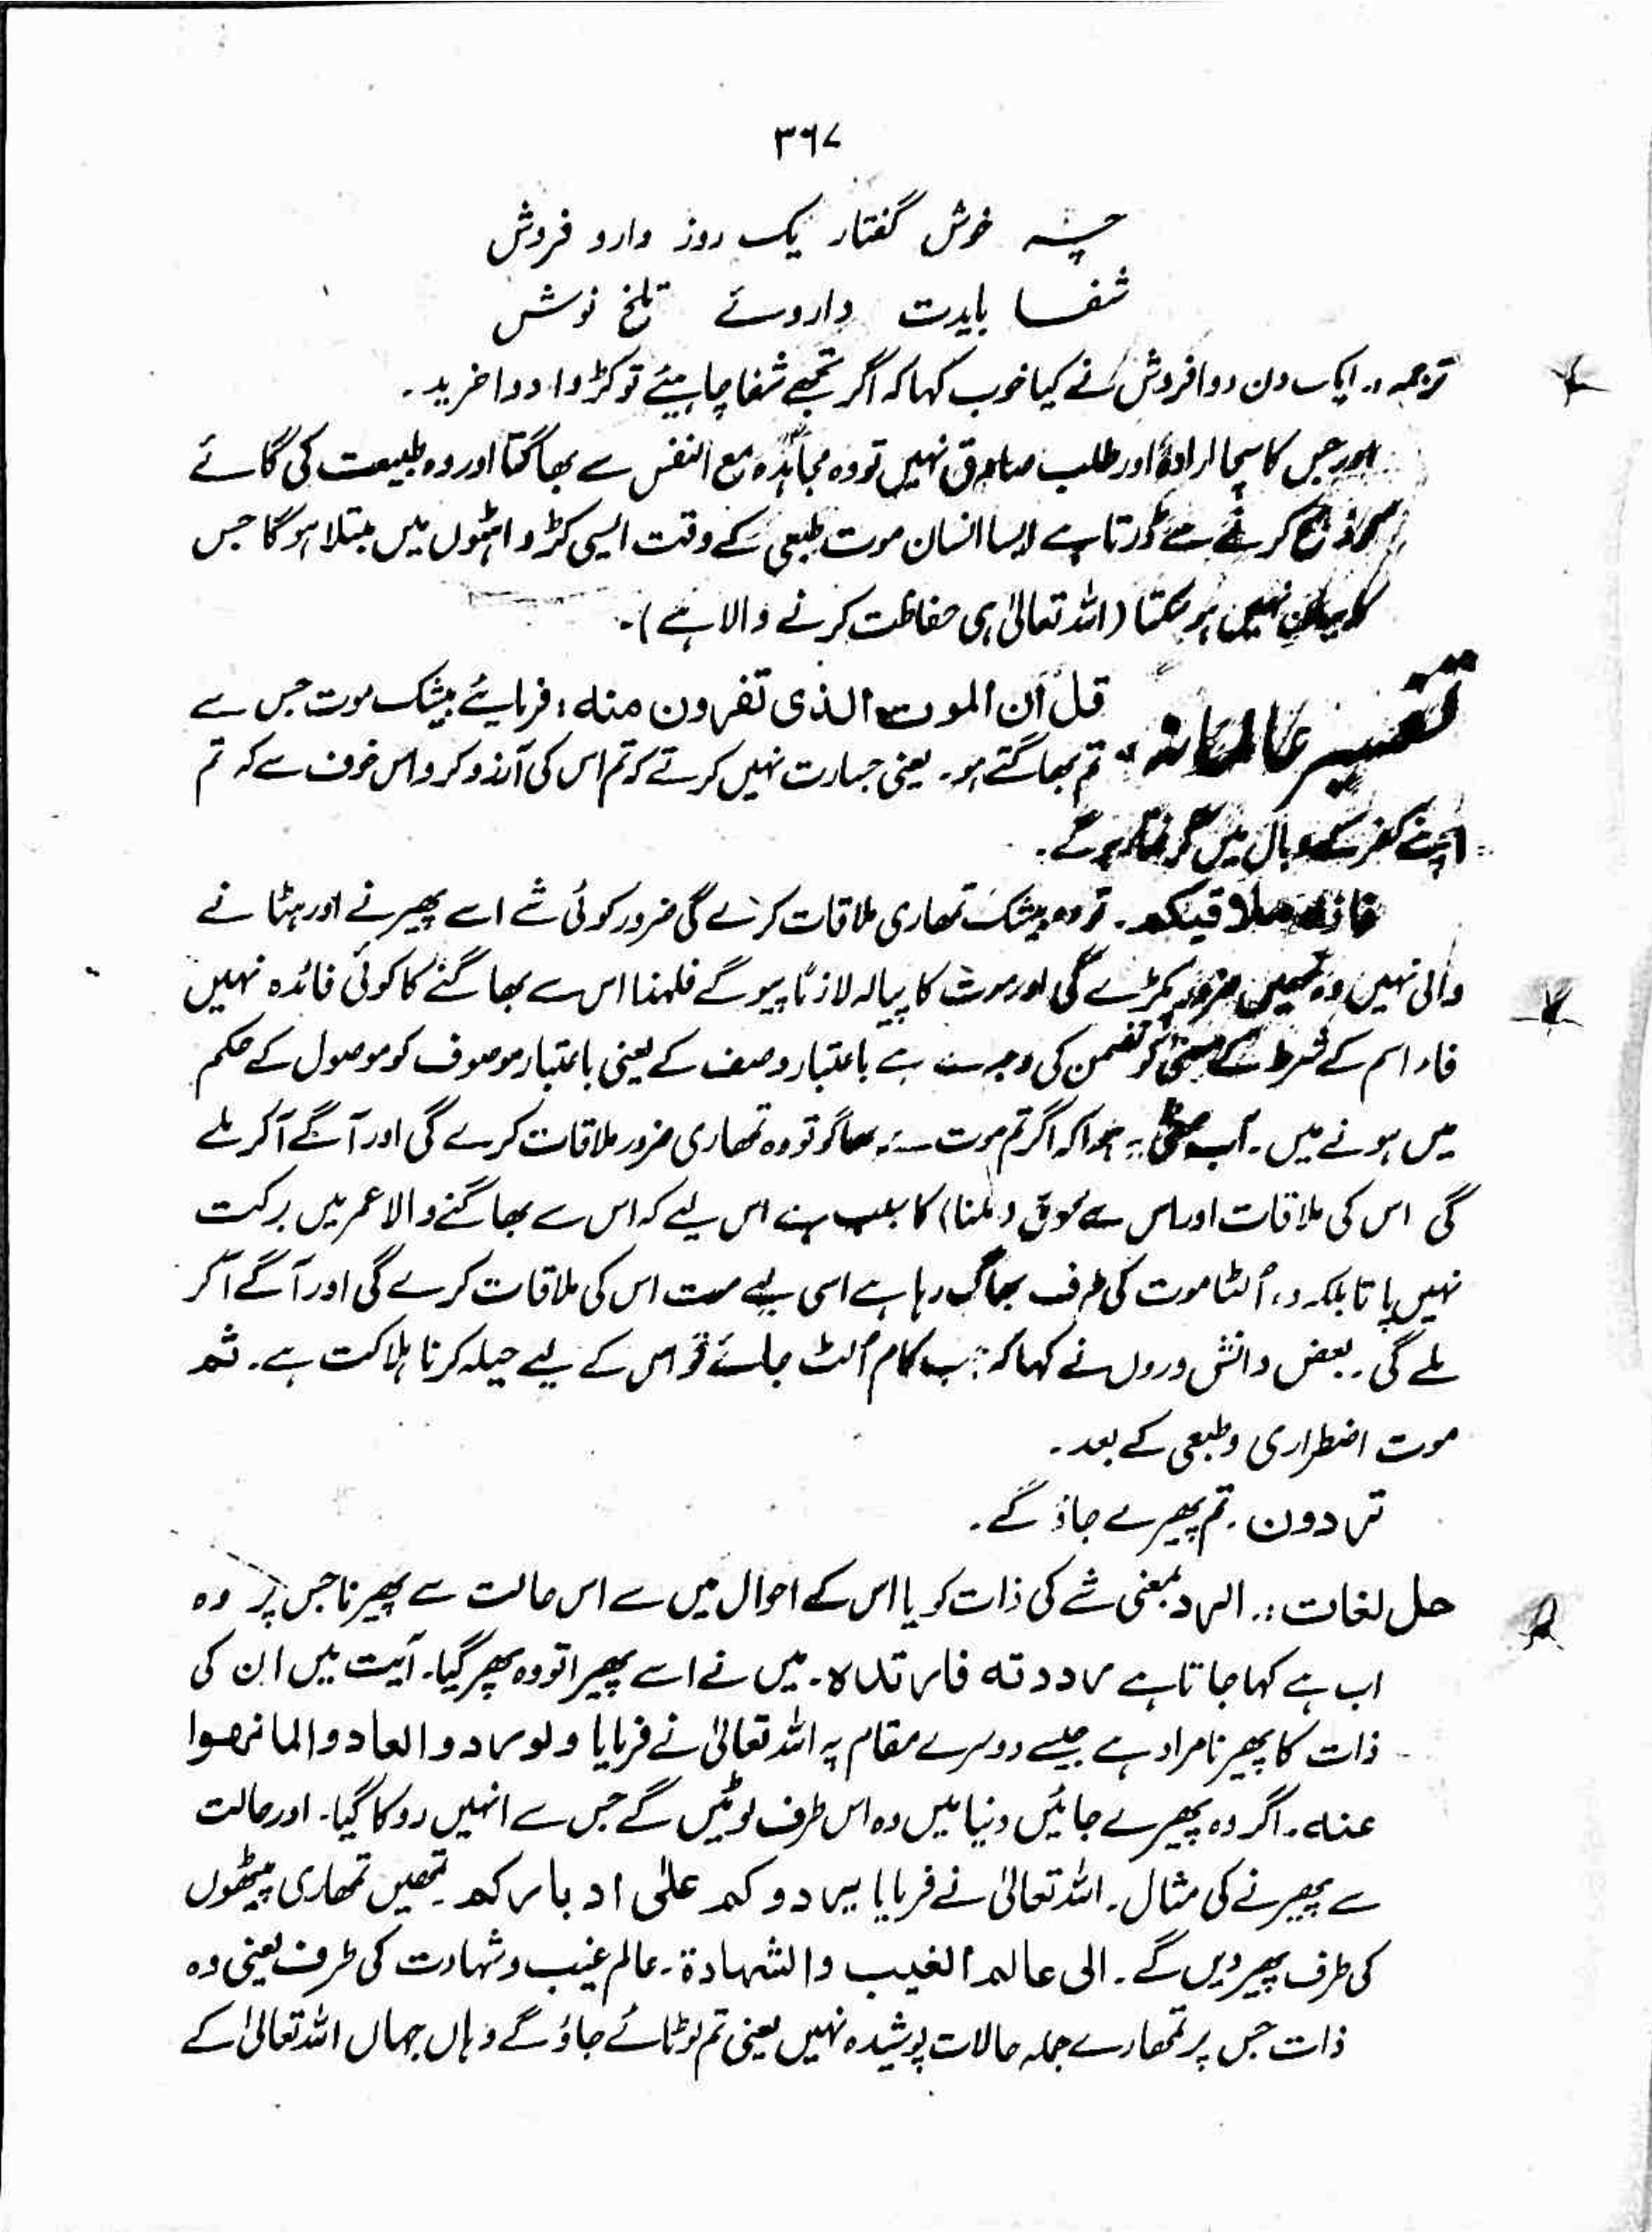 ۳۶۷
چہ خوش گفتار یک روز دارو فروش
شفا بایدت داروئے تلخ نوش
ترجمہ :۔ ایک دن دوا فروش نے کیا خوب کہا کہ اگر تجھے شفا چاہیئے تو کڑوا دوا خرید۔
اور جس کا سچا ارادہ اور طلب صادق نہیں تو وہ مجاہدہ مع النفس سے بھاگتا اور وہ طبیعت کی گائے
کو ذبح کرنے سے ڈرتا ہے ایسا انسان موت طبعی کے وقت ایسی کڑواہٹوں میں مبتلا ہوگا جس
کا بیان نہیں ہو سکتا (اللہ تعالیٰ ہی حفاظت کرنے والا ہے)۔
تفسیر عالمانہ : قل ان الموت الذی تفرون منہ : فرمائیے بیشک موت جس سے
تم بھاگتے ہو۔ یعنی جسارت نہیں کرتے کہ تم اس کی آرزو کرو اس خوف سے کہ تم
اپنے کفر کے وبال میں گرفتار ہو گے۔
فانہ ملاقیکم۔ تو وہ بیشک تمھاری ملاقات کرے گی ضرور کوئی شے اسے پھیرنے اور ہٹانے
والی نہیں وہ تمہیں ضرور پکڑے گی اور موت کا پیالہ لازماً پیو گے فلہذا اس سے بھاگنے کا کوئی فائدہ نہیں
فاء اسم کے شرط کے معنیٰ کو تضمن کی وجہ سے ہے باعتبار وصف کے یعنی باعتبار موصوف کو موصول کے حکم
میں ہونے میں۔ اب معنیٰ یہ ہوا کہ اگر تم موت سے بھاگو تو وہ تمھاری ضرور ملاقات کرے گی اور آگے آکر ملے
گی اس کی ملاقات اور اس سے لحوق (ملنا) کا سبب ہے اس لیے کہ اس سے بھاگنے والا عمر میں برکت
نہیں پاتا بلکہ وہ اُلٹا موت کی طرف بھاگ رہا ہے اسی لیے موت اس کی ملاقات کرے گی اور آگے آکر
ملے گی۔ بعض دانش وروں نے کہا کہ جب کام اُلٹ جائے تو اس کے لیے حیلہ کرنا ہلاکت ہے۔ ثم
موت اضطراری وطبعی کے بعد۔
تردون۔ تم پھیرے جاؤ گے۔
حل لغات :۔ الرد بمعنی شے کی ذات کو یا اس کے احوال میں سے اس حالت سے پھیرنا جس پر وہ
اب ہے کہا جاتا ہے رددتہ فارتدہ۔ میں نے اسے پھیرا تو وہ پھر گیا۔ آیت میں ان کی
ذات کا پھیرنا مراد ہے جیسے دوسرے مقام پہ اللہ تعالیٰ نے فرمایا ولو ردوا لعادوا لما نھوا
عنہ۔ اگر وہ پھیرے جائیں دنیا میں وہ اس طرف لوٹیں گے جس سے انہیں روکا گیا۔ اور حالت
سے پھیرنے کی مثال۔ اللہ تعالیٰ نے فرمایا یردوکم علیٰ ادبارکم۔ تمھیں تمھاری پیٹھوں
کی طرف پھیر دیں گے۔ الی عالم الغیب والشہادۃ۔ عالم غیب وشہادت کی طرف یعنی وہ
ذات جس پر تمھارے جملہ حالات پوشیدہ نہیں یعنی تم لوٹائے جاؤ گے وہاں جہاں اللہ تعالیٰ کے